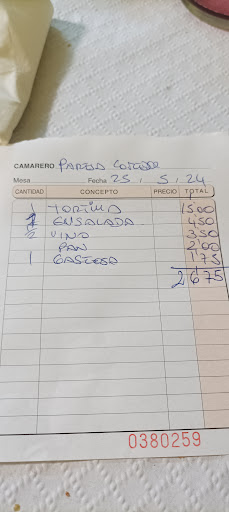 CAMARERO
Mesa Fecha 25 / 5 / 24
CANTIDAD CONCEPTO PRECIO TOTAL
1 TORTILLA 15 00
ENSALADA 4 50
2 VINO 3 50
PAN 2 00
1 GASEOSA 1 75
26 75
0380259